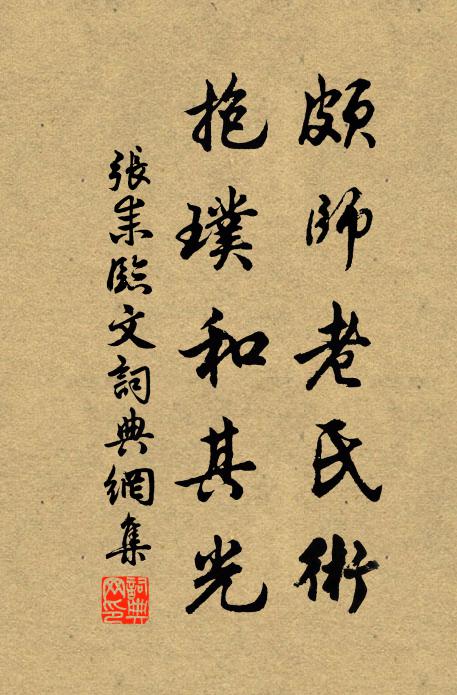 頗師老氏術
抱璞和其光
張耒臨文詞典網集
詞典网印